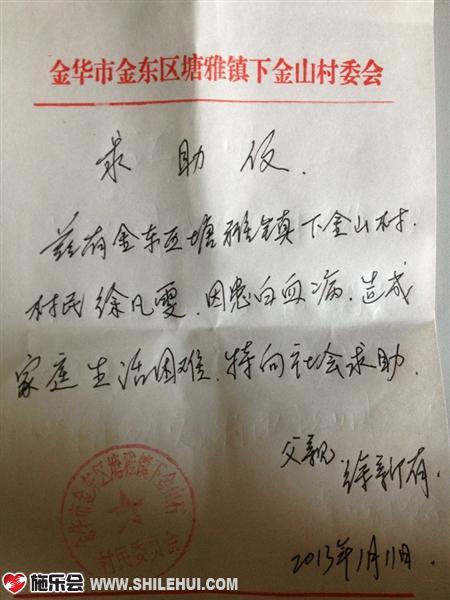 金华市金东区塘雅镇下金山村委会
求助仅.
兹有金东区塘雅镇下金山村.
村民徐凡雯.因患白血病.造成
家庭生活困难.特向社会求助.
父亲.徐新有.
2013年1月11日.
金华市金东区塘雅镇下金山村
村民委员会
施乐会 www.SHILEHUI.com